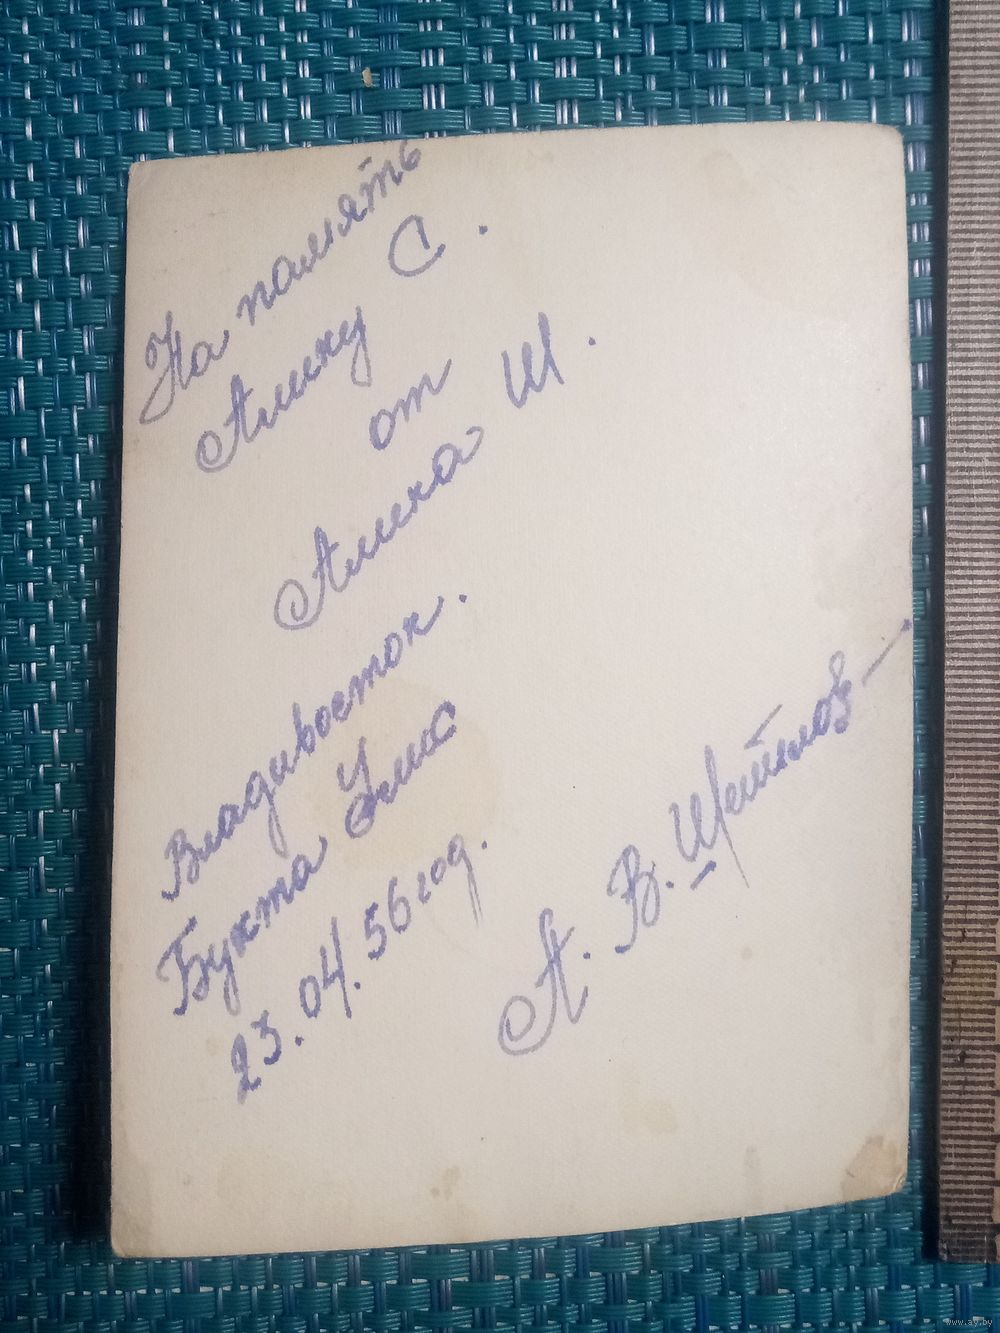 На память
Алику С.
от
Алика Ш.
Владивосток.
Бухта Улис
23.04.56 год.
А. В.
www.ay.by